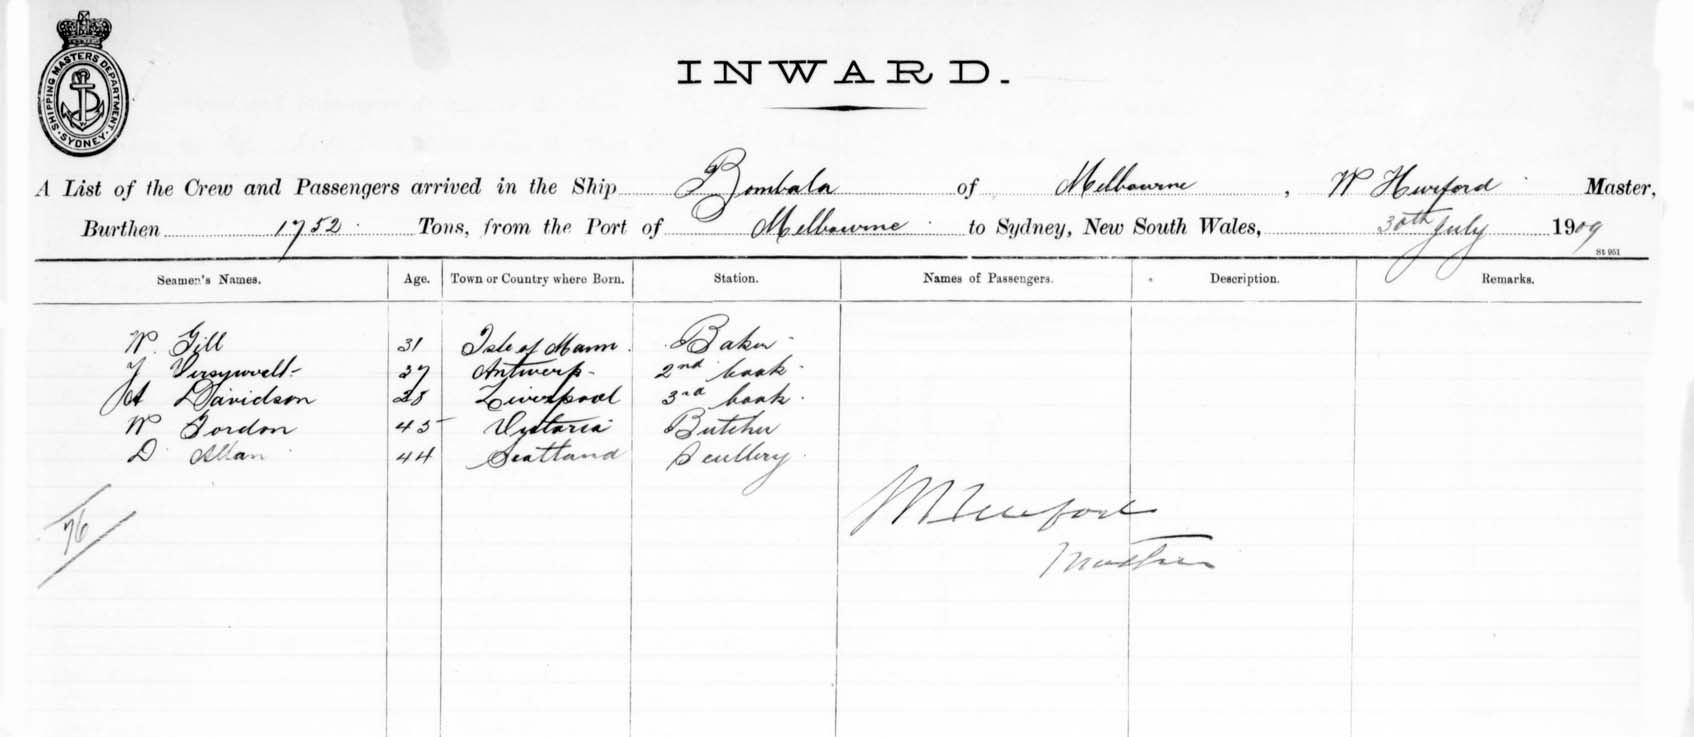 SHIPPING MASTERS DEPARTMENT. SYDNEY.
INWARD.
A List of the Crew and Passengers arrived in the Ship Bombala of Melbourne, W Hurford Master,
Burthen 1752 Tons, from the Port of Melbourne to Sydney, New South Wales, 30th July 1909
St 951
Seamen's Names. Age. Town or Country where Born. Station. Names of Passengers. Description. Remarks.
W. Gill 31 Isle of Mann Baker
27 Antwerp 2nd Cook
A Davidson 28 Liverpool 3rd Cook
W Gordon 45 Victoria Butcher
D Allan 44 Scotland Scullery
W Hurford
76
Master